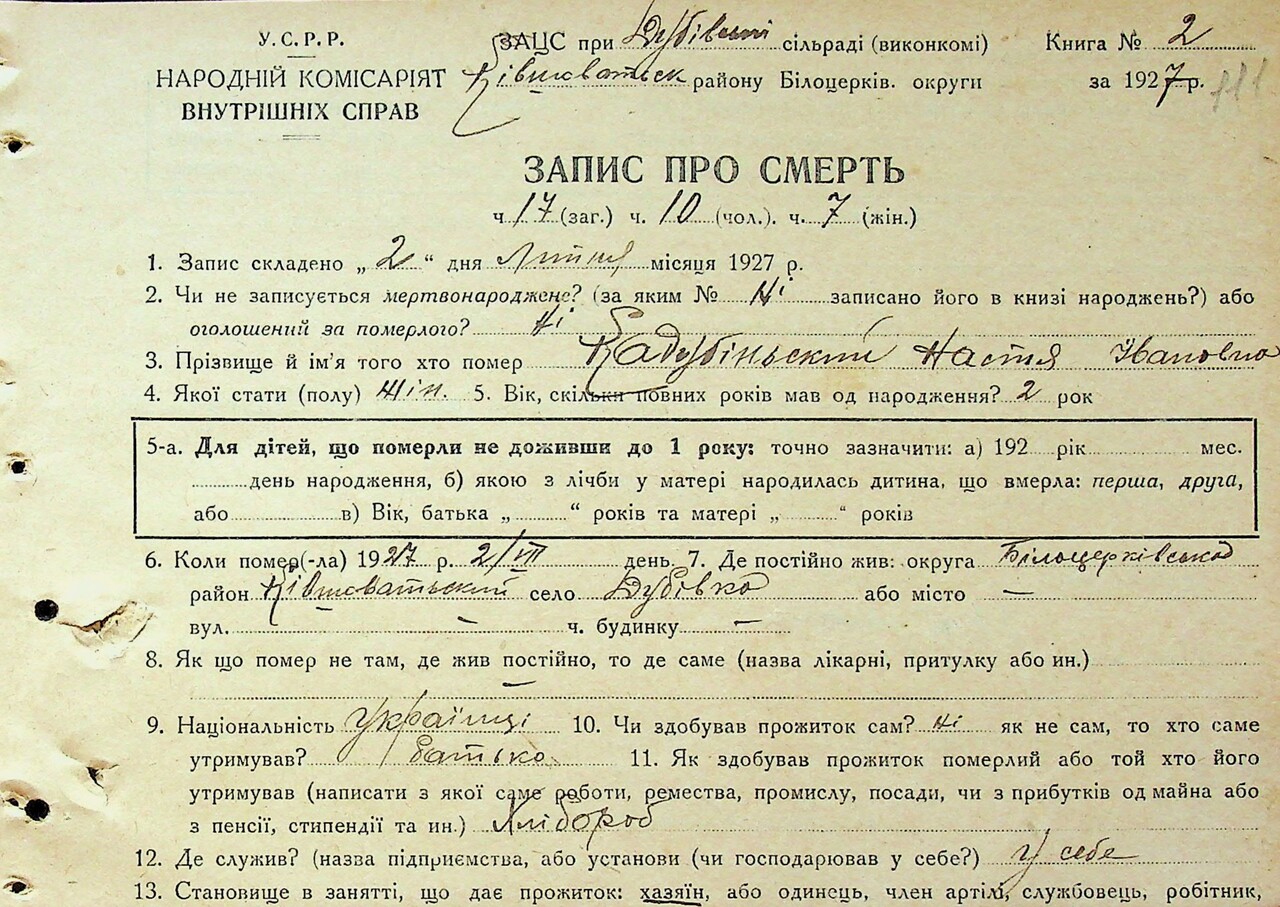 У.С.Р.Р.
НАРОДНІЙ КОМІСАРІЯТ
ВНУТРІШНІХ СПРАВ
ЗАЦС при Дубівській сільраді (виконкомі)
Ківшоватськ району Білоцерків. округи
Книга № 2
за 1927 р.
ЗАПИС ПРО СМЕРТЬ
ч. 17 (заг.) ч. 10 (чол.). ч. 7 (жін.)
1. Запис складено „ 2 “ дня Липня місяця 1927 р.
2. Чи не записується мертвонароджене? (за яким № Ні записано його в книзі народжень?) або
оголошений за померлого? ні
3. Прізвище й ім'я того хто помер Кадубіньский Настя Івановна
4. Якої стати (полу) жін. 5. Вік, скільки повних років мав од народження? 2 рок
5-а. Для дітей, що померли не доживши до 1 року: точно зазначити: а) 192 рік мес.
день народження, б) якою з лічби у матері народилась дитина, що вмерла: перша, друга,
або в) Вік, батька „ “ років та матері „ “ років
6. Коли помер(-ла) 1927 р. 2/VII день, 7. Де постійно жив: округа Білоцерківська
район Ківшоватьский село Дубівка або місто —
вул. — ч. будинку —
8. Як що помер не там, де жив постійно, то де саме (назва лікарні, притулку або ин.)
—
9. Національність Українці 10. Чи здобував прожиток сам? ні як не сам, то хто саме
утримував? батько 11. Як здобував прожиток померлий або той хто його
утримував (написати з якої саме роботи, ремества, промислу, посади, чи з прибутків од майна або
з пенсії, стипендії та ин.) Хлібороб
12. Де служив? (назва підприємства, або установи (чи господарював у себе?) у себе
13. Становище в занятті, що дає прожиток: хазяїн, або одинець, член артілі, службовець, робітник,